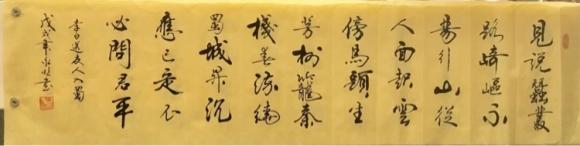 見說蠶叢
路崎嶇不
易行山從
人面起雲
傍馬頭生
芳樹籠秦
棧春流繞
蜀城昇沉
應已定不
必問君平
李白送友人入蜀
戊戌年書